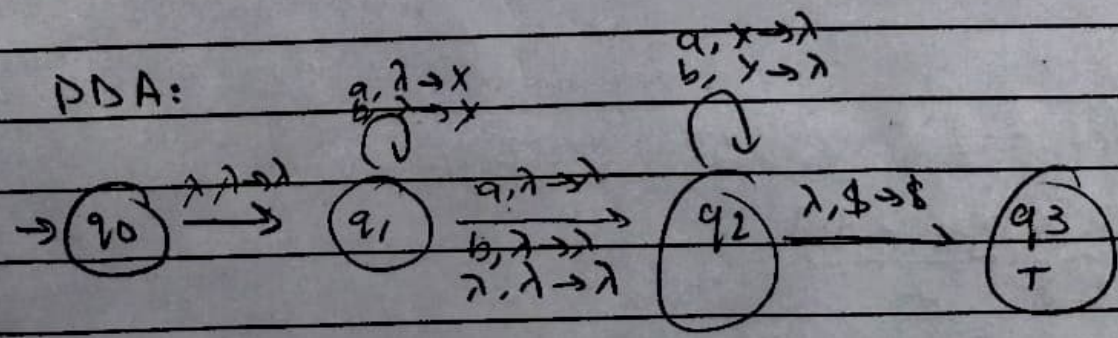 PDA:
a, λ→X
b, λ→Y
a, X→λ
b, Y→λ
→ q0
λ, λ→λ
q1
a, λ→λ
b, λ→λ
λ, λ→λ
q2
λ, $→$
q3
T